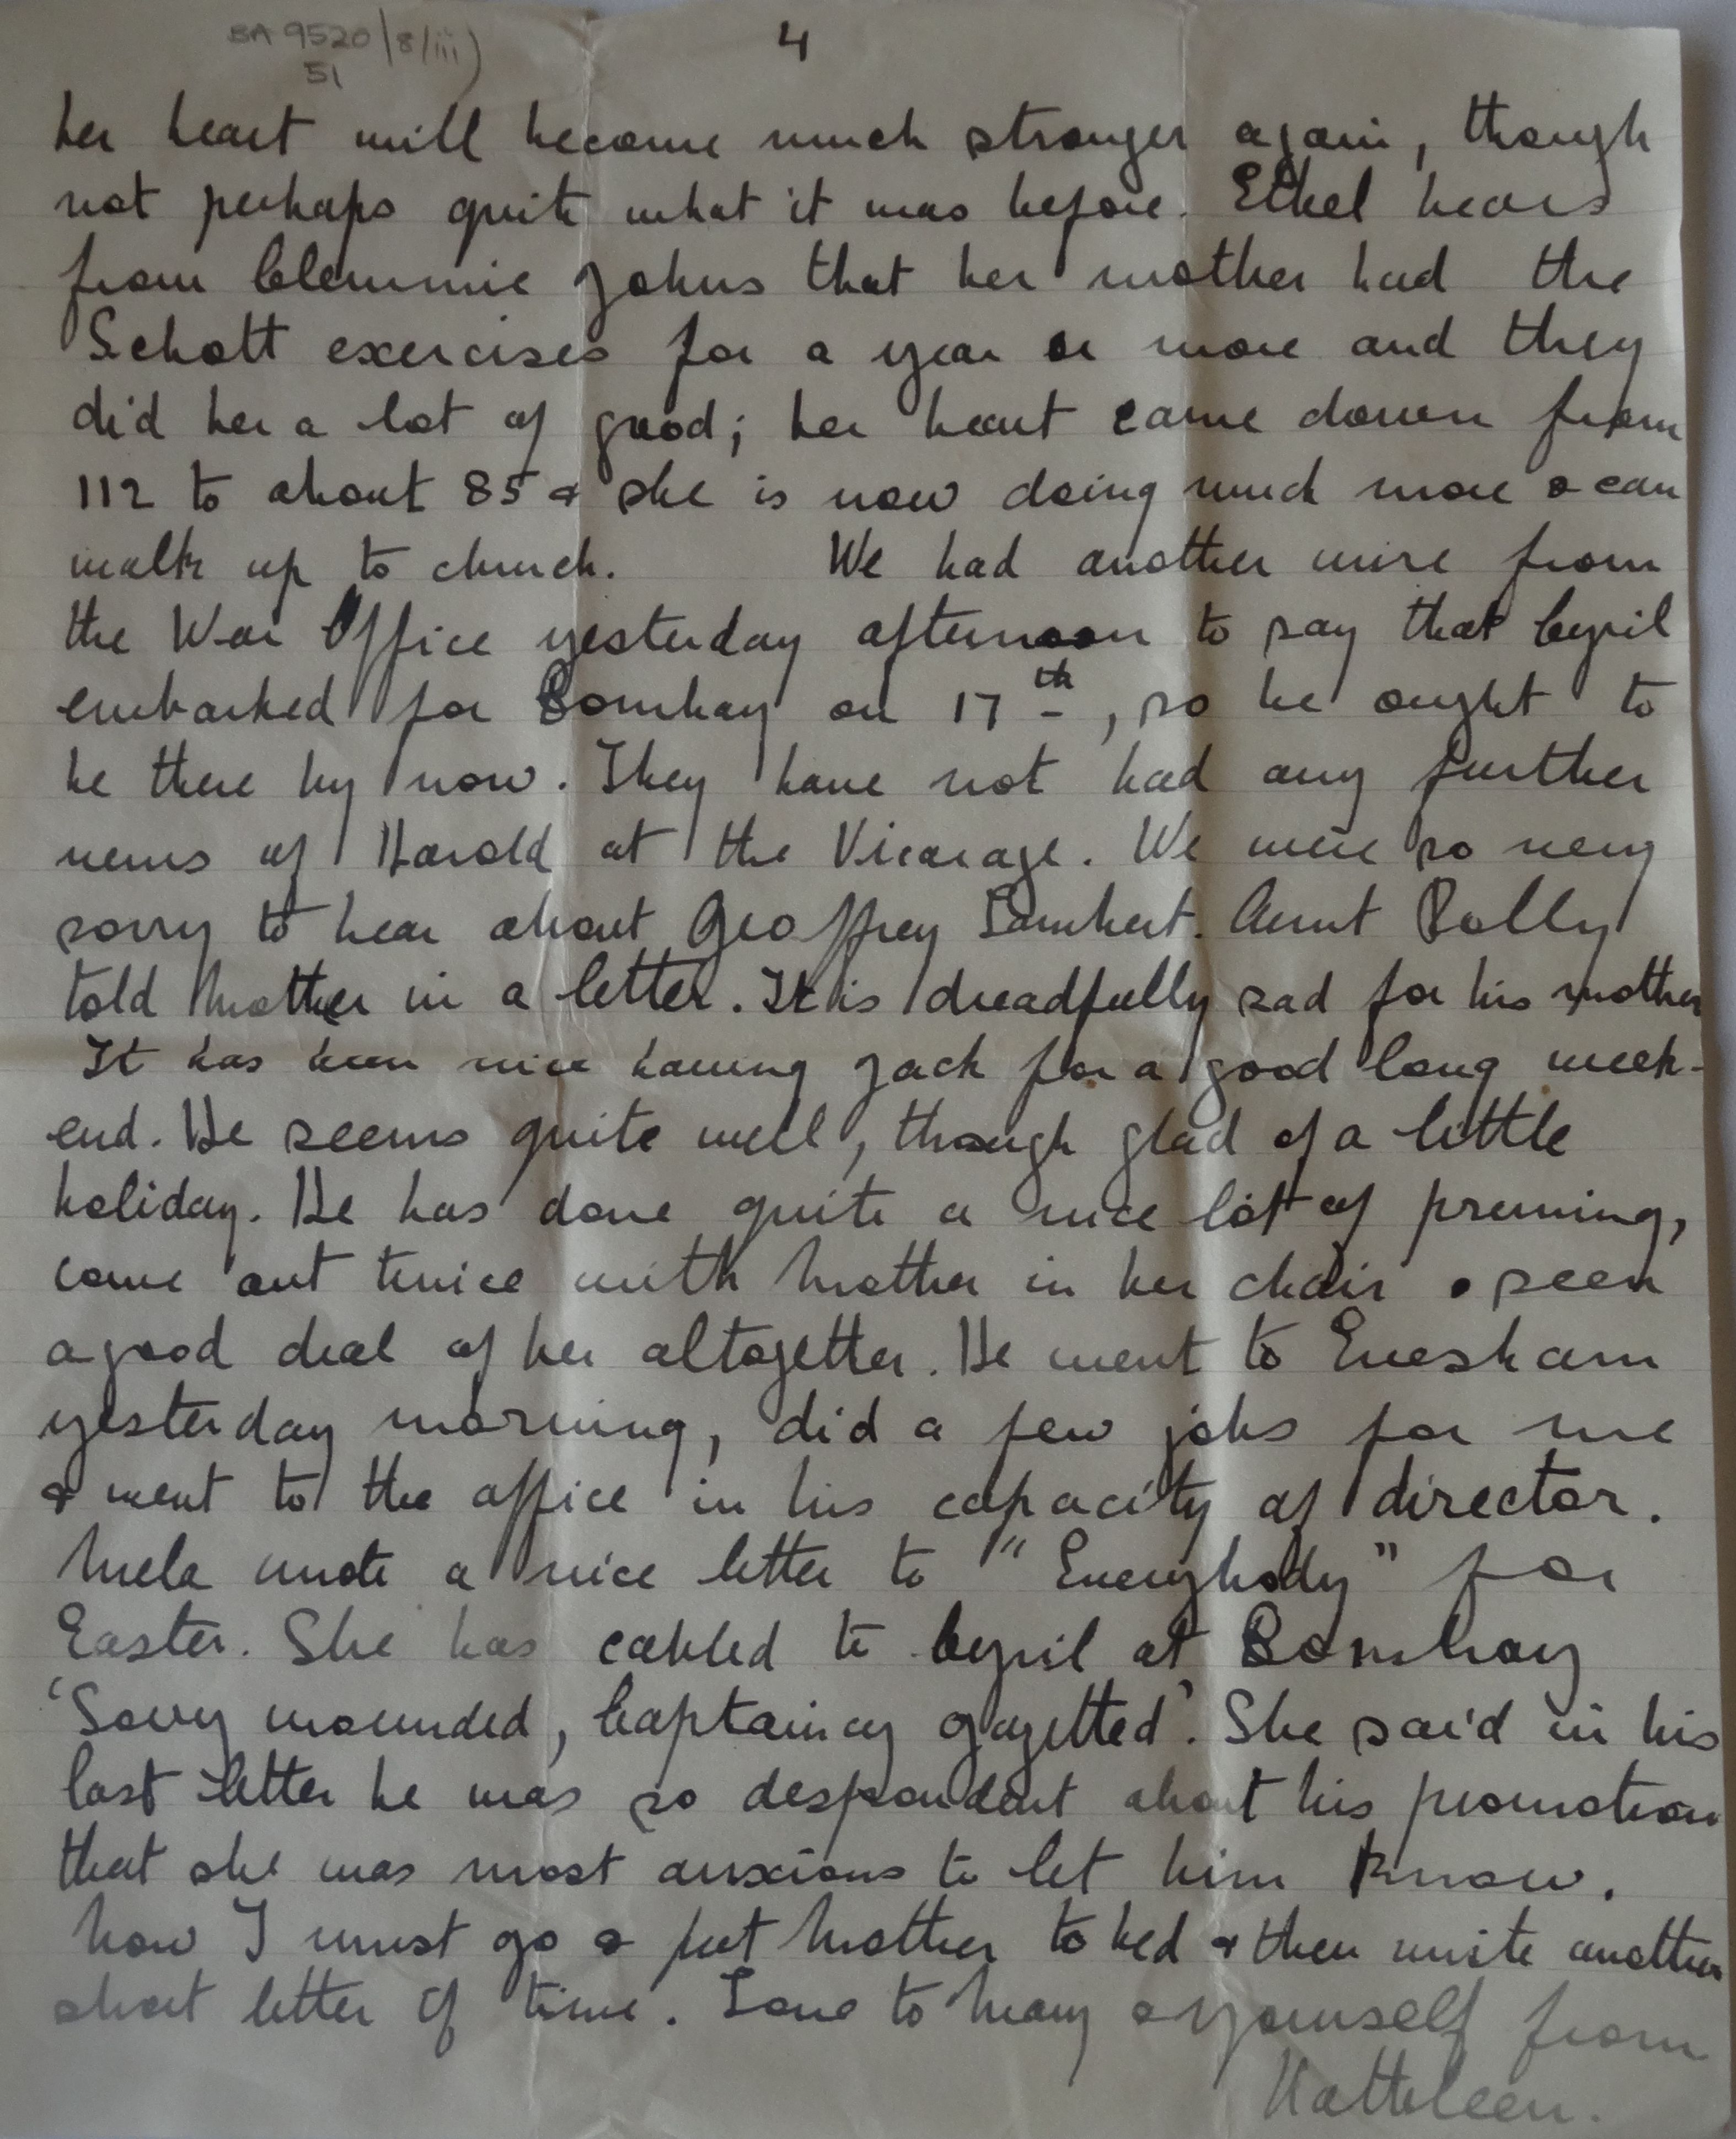 BA 9520/8/iii)
51
4
her heart will become much stronger again, though
not perhaps quite what it was before. Ethel hears
from Clemmie Johns that her mother had the
Schott exercises for a year or more and they
did her a lot of good; her heart came down from
112 to about 85 & she is now doing much more & can
walk up to church. We had another wire from
the War Office yesterday afternoon to say that Cyril
embarked for Bombay on 17th, so he ought to
be there by now. They have not had any further
news of Harold at the Vicarage. We were so very
sorry to hear about Geoffrey Lambert. Aunt Polly
told Mother in a letter. It is dreadfully sad for his mother
It has been nice having Jack for a good long week-
end. He seems quite well, though glad of a little
holiday. He has done quite a nice lot of pruning,
come out twice with Mother in her chair & seen
a good deal of her altogether. He went to Evesham
yesterday morning, did a few jobs for me
& went to the office in his capacity of director.
Mela wrote a nice letter to "Everybody" for
Easter. She has cabled to Cyril at Bombay
'Sorry wounded, Captaincy gazetted'. She said in his
last letter he was so despondent about his promotion
that she was most anxious to let him know.
Now I must go & put Mother to bed & then write another
short letter if time. Love to Mary & yourself from
Kathleen.